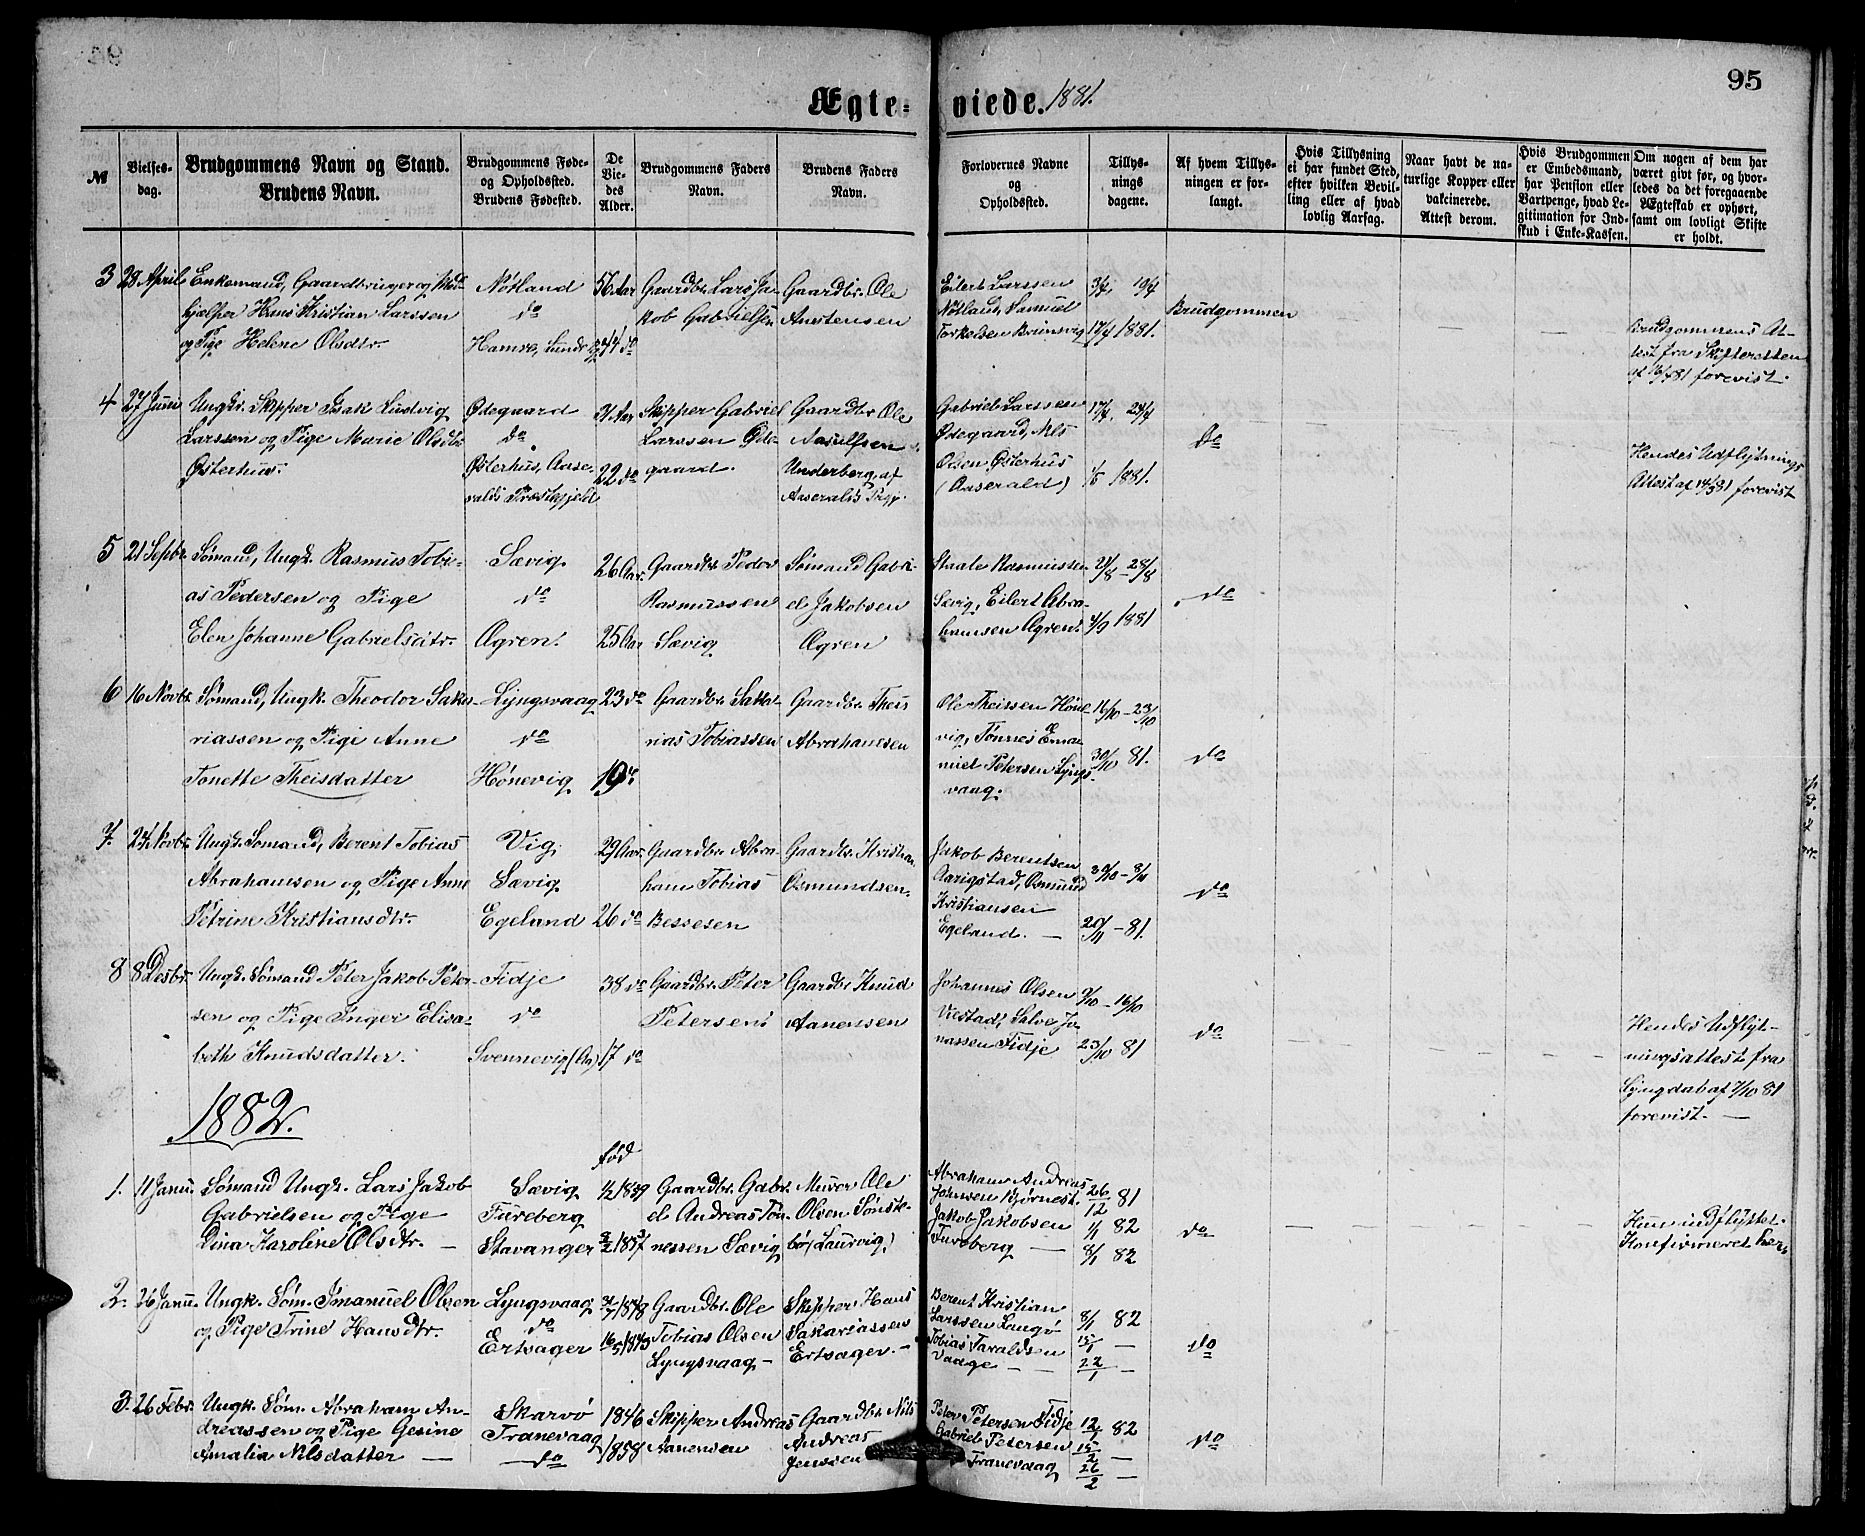 95
Ægte- viede. 1881.
№
Vielses-
dag.
Brudgommens Navn og Stand.
Brudens Navn.
Brudgommens Føde-
og Opholdssted.
Brudens Fødested.
De
Vie-
des
Alder.
Brudgommens Faders
Navn.
Brudens Faders
Navn.
Forlovernes Navne
og
Opholdssted.
Tillys-
nings
dagene.
Af hvem Tillys-
ningen er for-
langt.
Hvis Tillysning
ei har fundet Sted,
efter hvilken Bevil-
ling eller af hvad
lovlig Aarsag.
Naar havt de na-
turlige Kopper eller
vakcinerede.
Attest derom.
Hvis Brudgommen
er Embedsmand,
har Pension eller
Vartpenge, hvad Le-
gitimation for Ind-
skud i Enke-Kassen.
Om nogen af dem har
været givt før, og hvor-
ledes da det foregaaende
Ægteskab er ophørt,
samt om lovligt Skifte
er holdt.
3 28 April Enkemand, Gaardbruger og Med-
hjælper Hans Kristian Larssen
og Pige Helene Olsdtr.
Nøtland
do
Hamre,
56 Aar
44 do
Gaardbr. Lars Ja-
kob Gabrielsen
Gaardbr. Ole
Anstensen
Eilert Larssen
Nøtland, Samuel
Torkelsen Brinsvig
3/4 10/4
17/4 1881.
Brudgommen
Brudgommens At-
test fra Skifteretten
af 16/4 81 forevist.
4 27 Juni Ungkr. Skipper Isak Ludvig
Larssen og Pige Marie Olsdtr.
Østerhus.
Ødegaard
do
Østerhus, Aase-
rals Præstegjeld
31 Aar
22 do
Skipper Gabriel
Larssen Øde-
gaard.
Gaardbr. Ole
Aasulfsen
Underberg, af
Aaserals Prgj.
Gabriel Larssen
Ødegaard, Nils
Olsen Østerhus
(Aaserald)
17/4. 24/4
1/5 1881.
do
Hendes Udflytnings
Attest af 14/3 81 forevist
5 21 Septbr. Sømand, Ungk. Rasmus Tobi-
as Pedersen og Pige
Elen Johanne Gabrielsdtr.
Sævig
do
Ågren.
26 Aar.
25 Aar
Gaardbr. Peder
Rasmussen
Sævig
Sømand Gabri-
el Jakobsen
Ågren
Staale Rasmussen
Sævig, Eilert Abra-
hamsen Ågren.
21/8 - 28/8
4/9 1881
do
6 16 Novbr. Sømand, Ungk. Theodor Saka-
riassen og Pige Anne
Tonette Theisdatter
Lyngsvaag
do
Hønevig
23 do
19 do
Gaardbr. Saka-
rias Tobiassen
Gaardbr. Theis
Abrahamsen
Ole Theissen Høne-
vig, Tønnes Ema-
nuel Petersen Lyngs-
vaag.
16/10 - 23/10
30/10 81.
do
7. 24 Novbr. Ungk. Sømand, Berent Tobias
Abrahamsen og Pige Anne
Petrine Kristiansdtr.
Vig
Sævig
Egeland
29 Aar.
26 do
Gaardbr. Abra-
ham Tobias
Bessesen
Gaardbr. Kristian
Osmundsen.
Jakob Berentsen
Aarigstad, Osmund
Kristiansen
Egeland.
81.
do
8 8 Desbr. Ungk. Sømand Peter Jakob Peter-
sen og Pige Inger Elisa-
beth Knudsdatter.
Tidje
do
Svennevig (Aa)
38 do
17 do
Gaardbr. Peter
Petersen
Gaardbr. Knud
Aanensen
Johannes Olsen
Viestad, Salve Jo-
nassen Fidje
9/10 - 16/10
23/10 81
do
Hendes Udflyt-
ningsattest fra
Lyngdal af 7/10 81
forevist.
1882.
fød
1. 11 Janu. Sømand Ungk. Lars Jakob
Gabrielsen og Pige
Dina Karoline Olsdtr.
Sævig
Fureberg
Stavanger
1/2 1859
2/2 1857
Gaardbr. Gabri-
el Andreas Tøn-
nessen Sævig
Murer Ole
Olsen Sønste-
bø (Laurvig)
Abraham Andreas
Johnsen Bjørnest.
Jakob Jakobsen
Fureberg
26/12 81
1/1 82
8/1 82
do
Hun indflyttet.
Konfirmeret her.
2. 26 Janu. Ungk. Søm. Imanuel Olsen
og Pige Trine Hansdtr.
Lyngsvaag
do
Ertsager
Gaardbr. Ole
Tobias Olsen
Lyngsvaag
Skipper Hans
Sakariassen
Ertsager.
Berent Kristian
Larssen Langø
Tobias Taraldsen
Vaage
8/1 82
15/1
22/1
do
3. 26 Febr. Ungk. Søm. Abraham An-
dreassen og Pige Gesine
Amalia Nilsdatter
Skarvø
Tranevaag
do
1846
1858
Skipper Andreas
Aanensen
Gaardbr. Nils
Andreas
Jenssen
Peter Petersen Fidje
Gabriel Petersen
Tranevaag
82
do